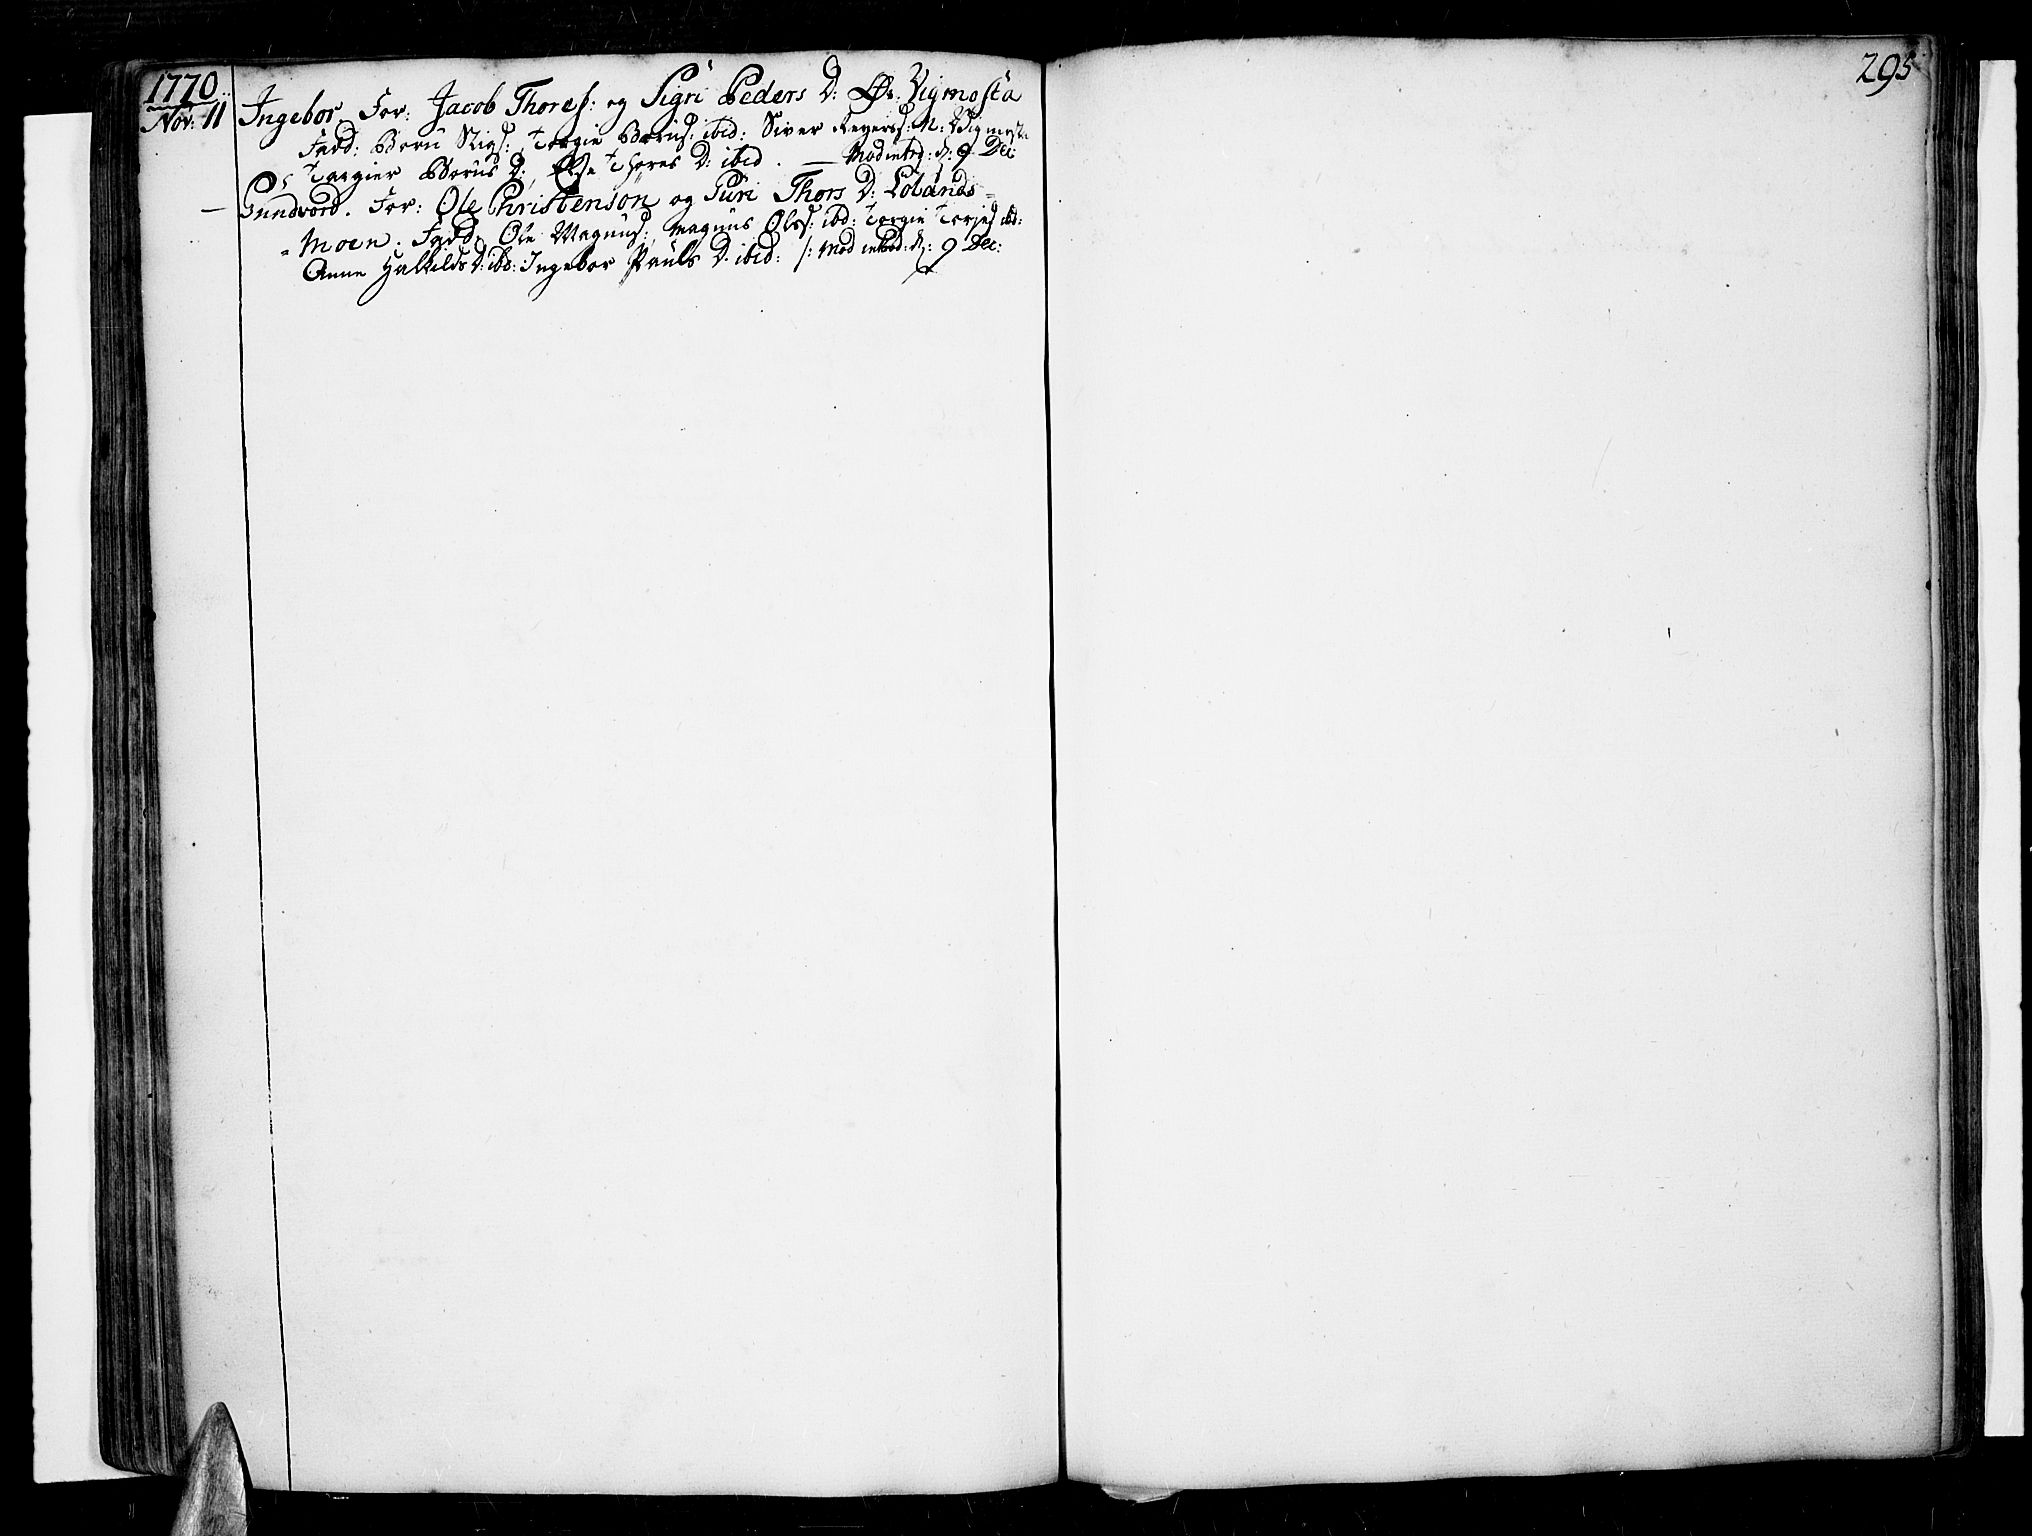 1770
Nov: 11 Ingebor. For: Jacob Thores: og Sigri Peders D: Øv: Vigmosta
Fadd: Boru Stigs:, Torgie Borus: ibid: Siver Reyerss: N: Vigmosta
Targier Borus D:, Else Thores D: ibid. — Mod introd: d: 9 Dec:
— Gundvord. For: Ole Christenson og Siri Thors D: Lolands-
-Moen. Fadd: Ole Magnus:, Magnus Olss: ibd: Torgie Terjes ibd:
Anne Halkilds D: ibd: Ingebor Pauls D. ibid: /: Mod introd: d: 9 Dec:
295